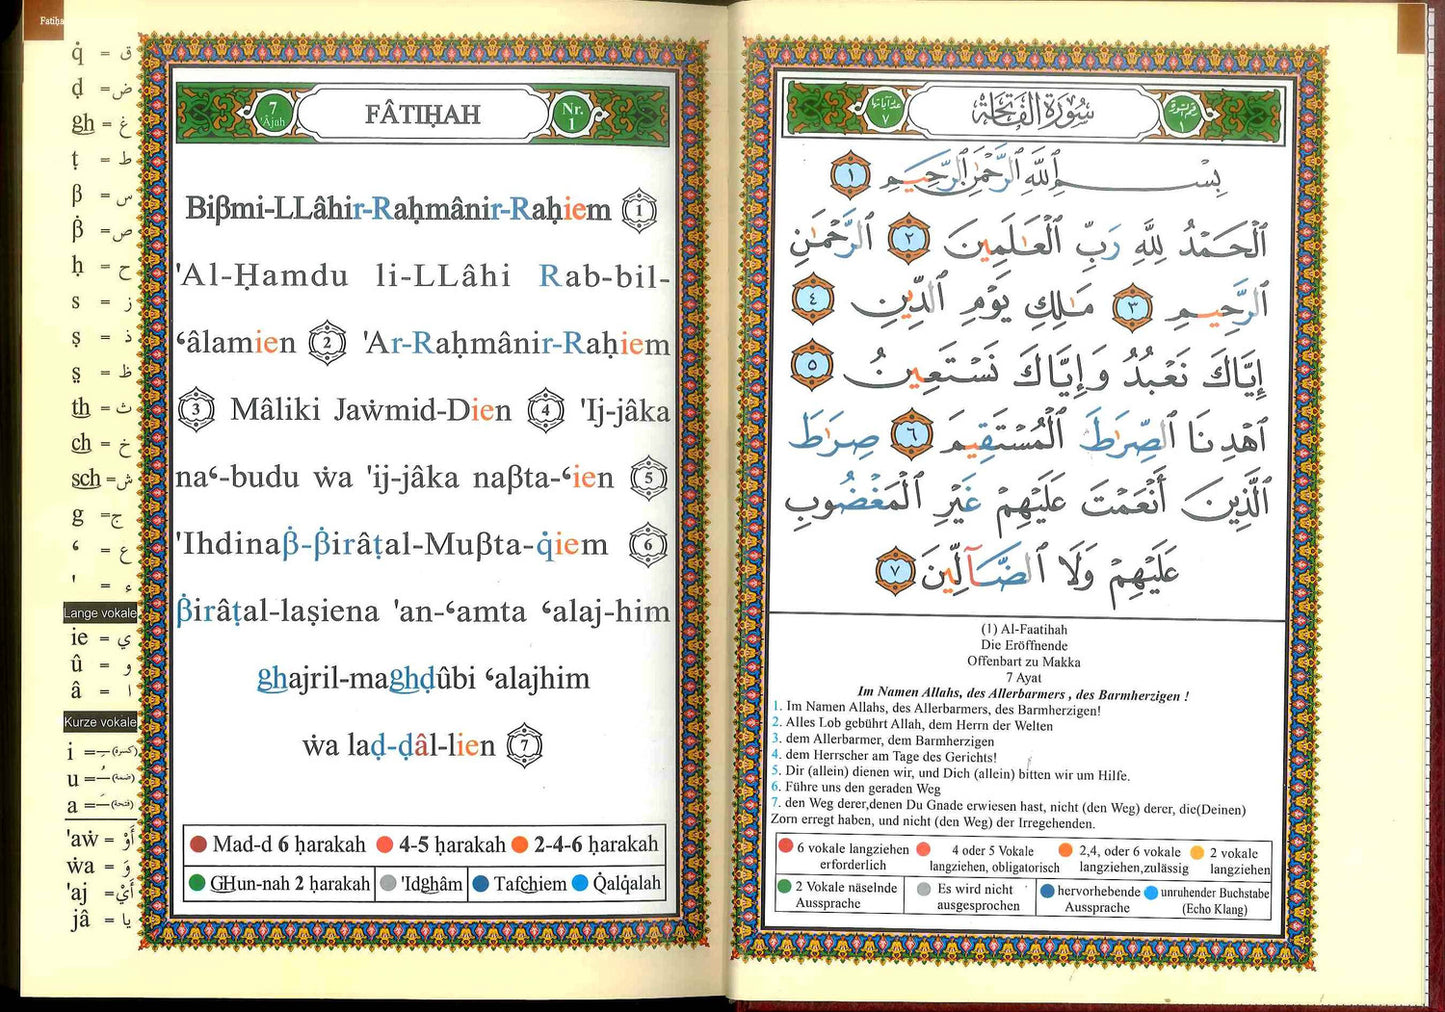 Fatiḥa
q̇ = ق
ḍ = ض
gh = غ
ṭ = ط
β = س
β̇ = ص
ḥ = ح
s = ز
ṣ = ذ
ş̣ = ظ
th = ث
ch = خ
sch = ش
g = ج
ʿ = ع
' = ء
Lange vokale
ie = ي
û = و
â = ا
Kurze vokale
i = ـِ (كسرة)
u = ـُ (ضمة)
a = ـَ (فتحة)
'aẇ = أَوْ
ẇa = وَ
'aj = أَيْ
jâ = يا
7 'Âjah
FÂTIḤAH
Nr. 1
Biβmi-LLâhir-Raḥmânir-Raḥiem 1
'Al-Ḥamdu li-LLâhi Rab-bil-
ʿâlamien 2 'Ar-Raḥmânir-Raḥiem
3 Mâliki Jaẇmid-Dien 4 'Ij-jâka
naʿ-budu ẇa 'ij-jâka naβta-ʿien 5
'Ihdinaβ̇-β̇irâṭal-Muβta-q̇iem 6
β̇irâṭal-laṣiena 'an-ʿamta ʿalaj-him
ghajril-maghḍûbi ʿalajhim
ẇa laḍ-ḍâl-lien 7
Mad-d 6 ḥarakah 4-5 ḥarakah 2-4-6 ḥarakah
GHun-nah 2 ḥarakah 'Idghâm Tafchiem Q̇alq̇alah
عدد آياتها ٧
سُورَةُ الْفَاتِحَةِ
رقم السورة ١
بِسْمِ ٱللَّهِ ٱلرَّحْمَٰنِ ٱلرَّحِيمِ ١
ٱلْحَمْدُ لِلَّهِ رَبِّ ٱلْعَٰلَمِينَ ٢ ٱلرَّحْمَٰنِ
ٱلرَّحِيمِ ٣ مَٰلِكِ يَوْمِ ٱلدِّينِ ٤
إِيَّاكَ نَعْبُدُ وَإِيَّاكَ نَسْتَعِينُ ٥
ٱهْدِنَا ٱلصِّرَٰطَ ٱلْمُسْتَقِيمَ ٦ صِرَٰطَ
ٱلَّذِينَ أَنْعَمْتَ عَلَيْهِمْ غَيْرِ ٱلْمَغْضُوبِ
عَلَيْهِمْ وَلَا ٱلضَّآلِّينَ ٧
(1) Al-Faatihah
Die Eröffnende
Offenbart zu Makka
7 Ayat
Im Namen Allahs, des Allerbarmers , des Barmherzigen !
1. Im Namen Allahs, des Allerbarmers, des Barmherzigen!
2. Alles Lob gebührt Allah, dem Herrn der Welten
3. dem Allerbarmer, dem Barmherzigen
4. dem Herrscher am Tage des Gerichts!
5. Dir (allein) dienen wir, und Dich (allein) bitten wir um Hilfe.
6. Führe uns den geraden Weg
7. den Weg derer,denen Du Gnade erwiesen hast, nicht (den Weg) derer, die(Deinen)
Zorn erregt haben, und nicht (den Weg) der Irregehenden.
6 vokale langziehen erforderlich
4 oder 5 Vokale langziehen, obligatorisch
2,4, oder 6 vokale langziehen,zulässig
2 vokale langziehen
2 Vokale näselnde Aussprache
Es wird nicht ausgesprochen
hervorhebende Aussprache
unruhender Buchstabe (Echo Klang)